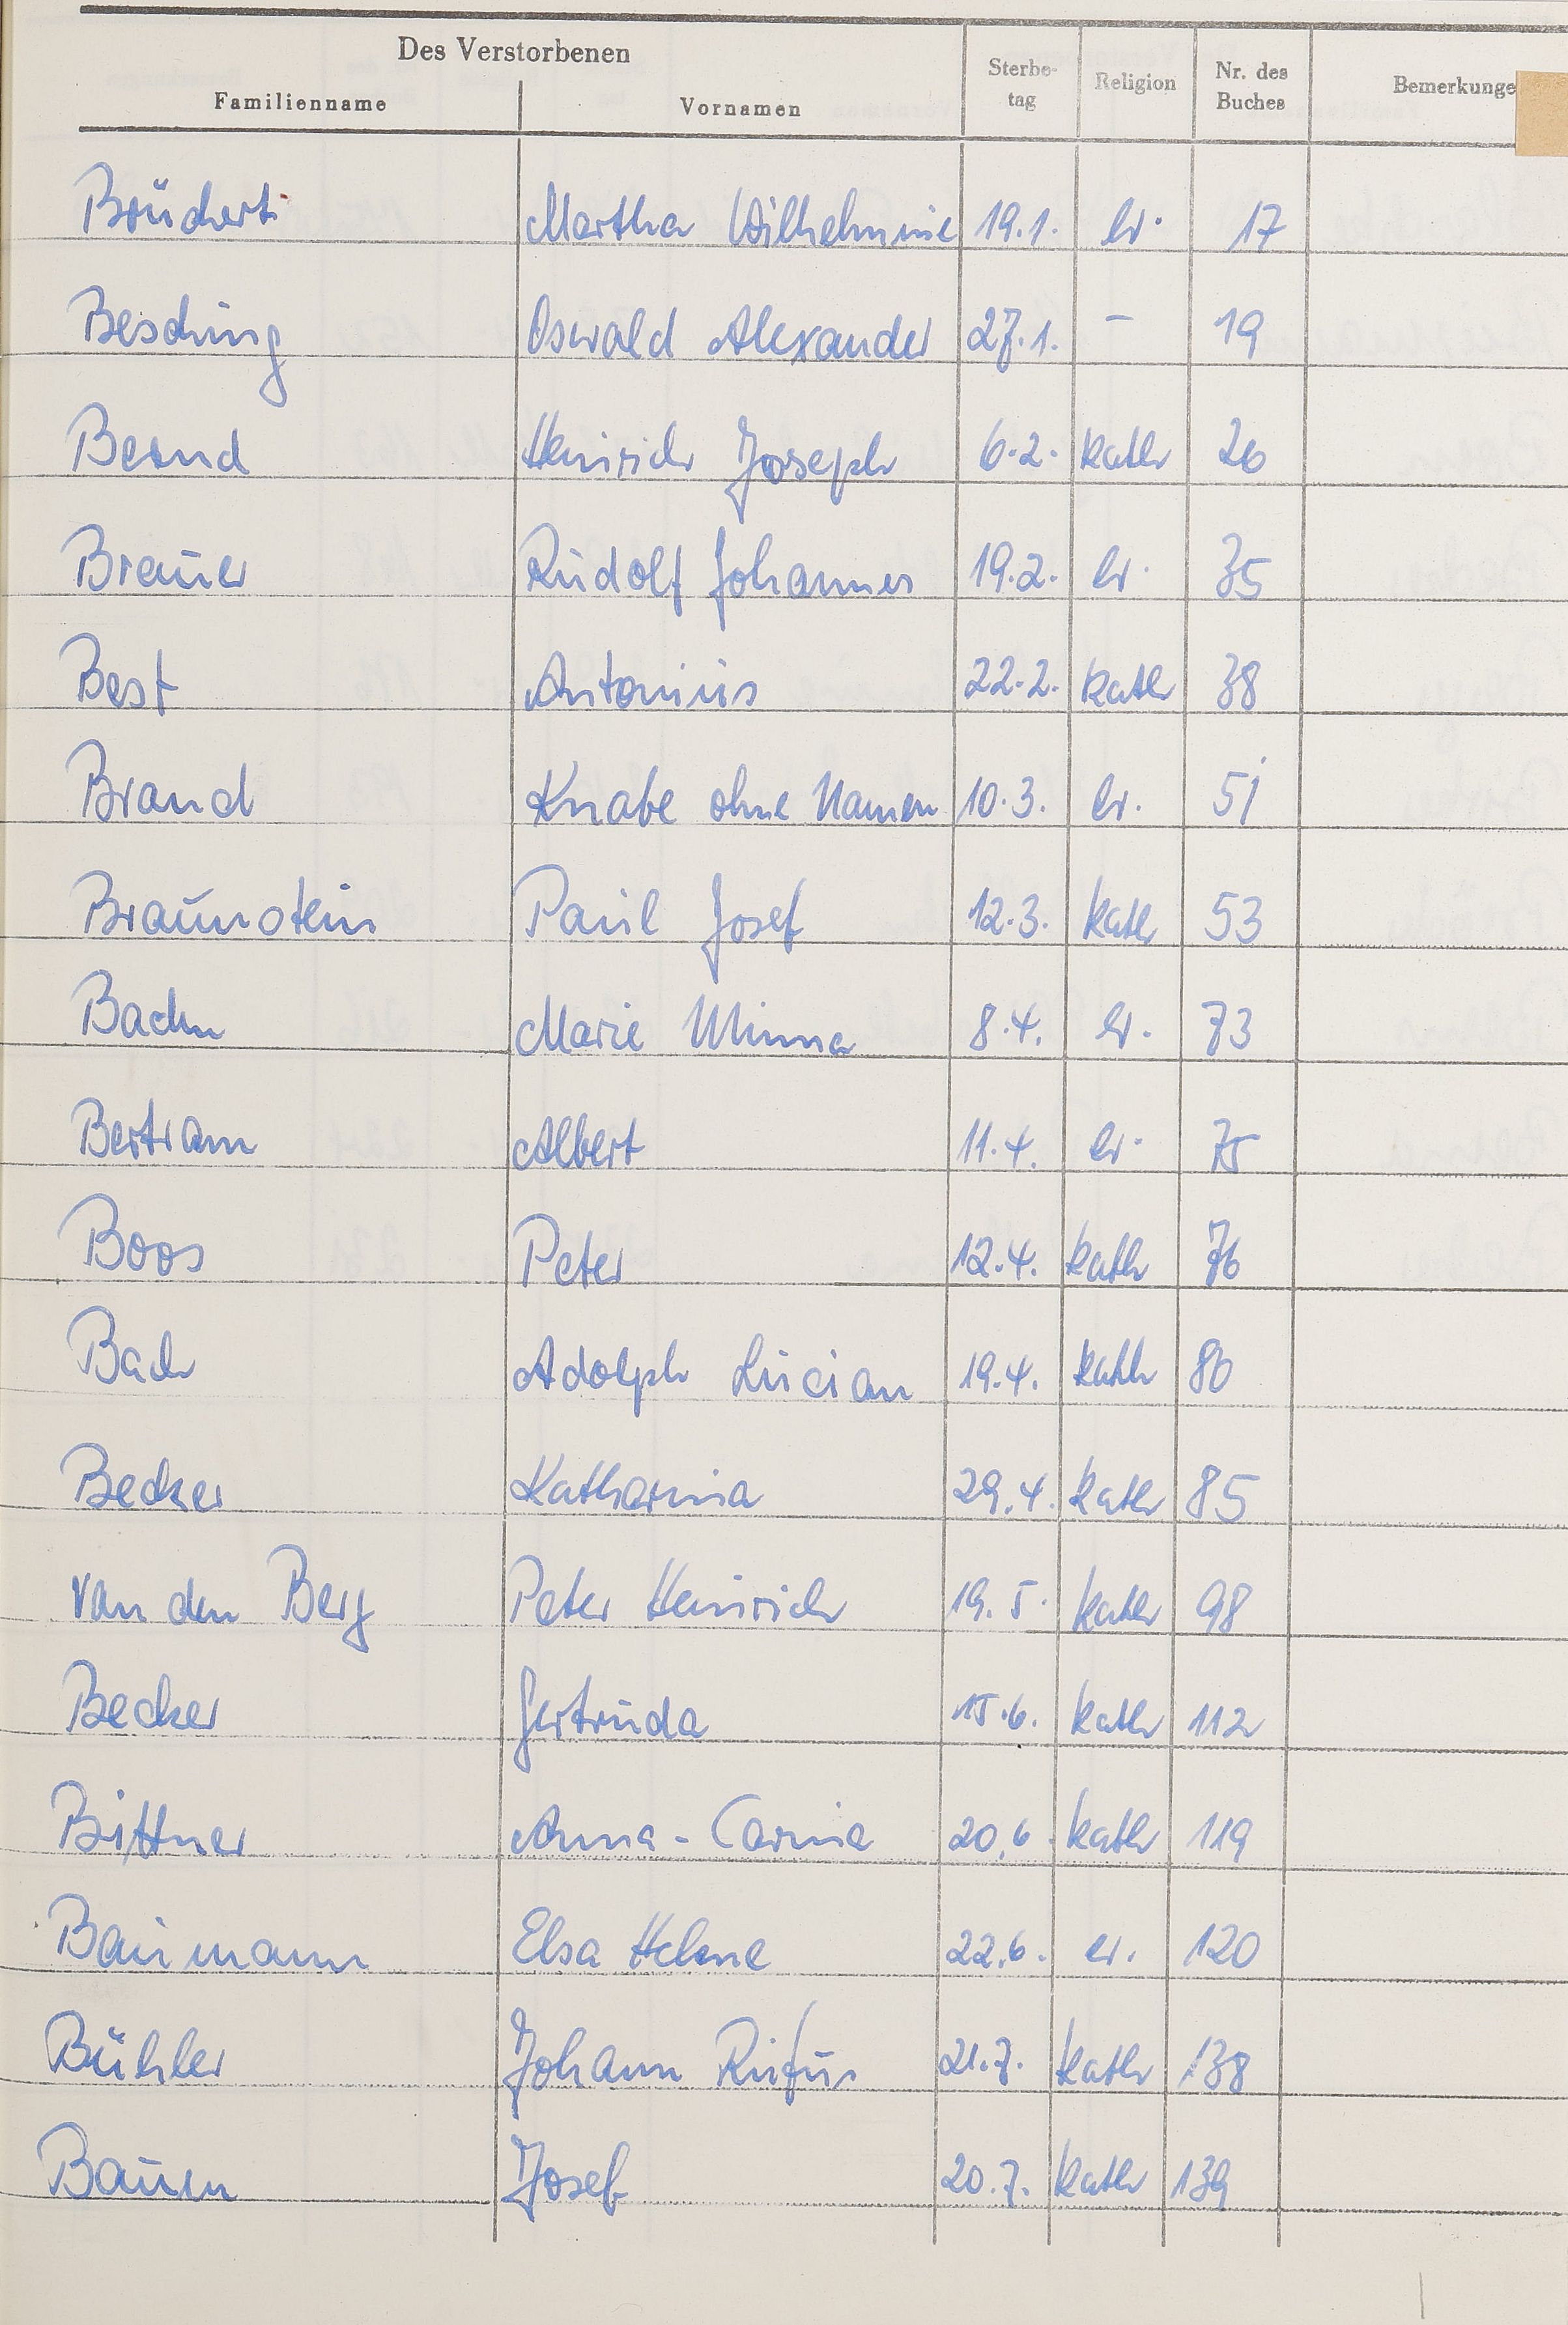 Des Verstorbenen
Familienname Vornamen Sterbe-tag Religion Nr. des Buches Bemerkunge
Brüchert Martha Wilhelmine 19.1. ev. 17
Besching Oswald Alexander 27.1. – 19
Bernd Heinrich Joseph 6.2. kath 26
Brauer Rudolf Johannes 19.2. ev. 35
Best Antonius 22.2. kath 38
Brand Knabe ohne Namen 10.3. ev. 51
Braunstein Paul Josef 12.3. kath 53
Bachn Marie Minna 8.4. ev. 73
Bertram Albert 11.4. ev. 75
Boos Peter 12.4. kath 76
Bach Adolph Lucian 19.4. kath 80
Becker Katharina 29.4. kath 85
van den Berg Peter Heinrich 19.5. kath 98
Becker Gertruda 15.6. kath 112
Bittner Anna-Carina 20.6. kath 119
Baumann Elsa Helene 22.6. ev. 120
Bühler Johann Rufus 21.7. kath 138
Bauen Josef 20.7. kath 139